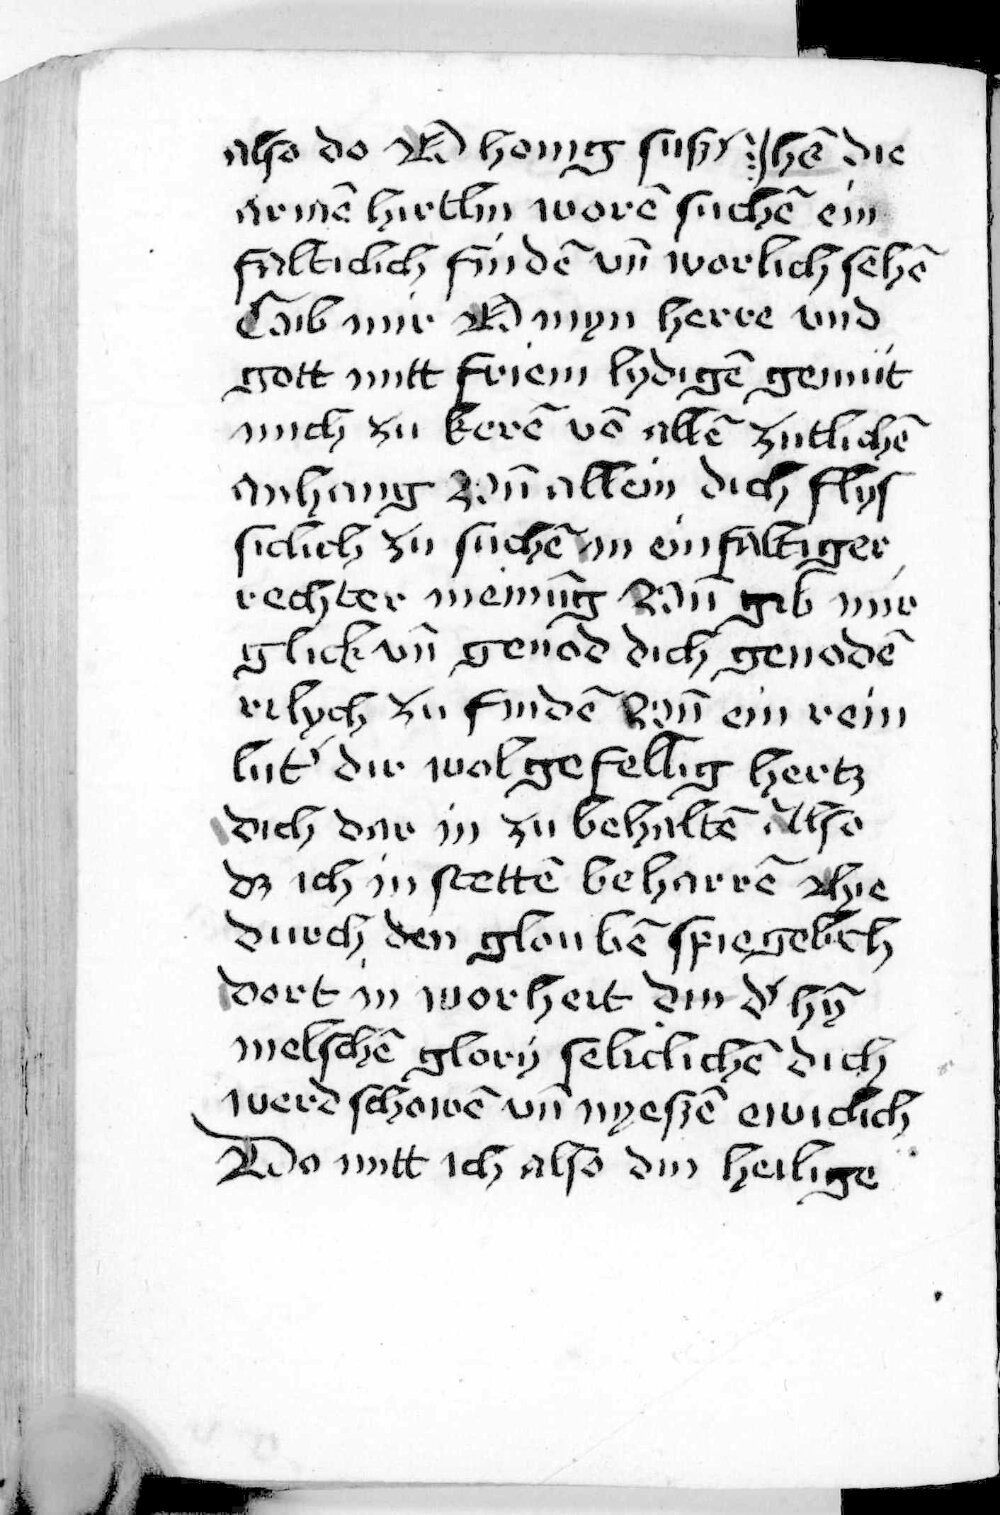 also do O honig susz Jhē die
armē hirtlin worē suchē ein
falticlich findē vn̄ worlich sehē
Gib mir O myn herre vnd
gott mitt friem lydigē gemüt
mich zu kerē vō allē zittlichē
anhang Vn̄ allein dich flys
siclich zu suchē in einfaltiger
rechter meinūg Vn̄ gib mir
glick vn̄ genod dich genodē
rilych zu findē Vn̄ ein rein
lut' dir wolgefellig hertz
dich dar in zu behaltē Also
dz ich in stettē beharrē Hie
durch den gloubē spiegelich
dort in worheit din d' hȳ
melschē glory seliclichē dich
werd schowē vn̄ nyeszē ewiclich
Do mitt ich also din heilige